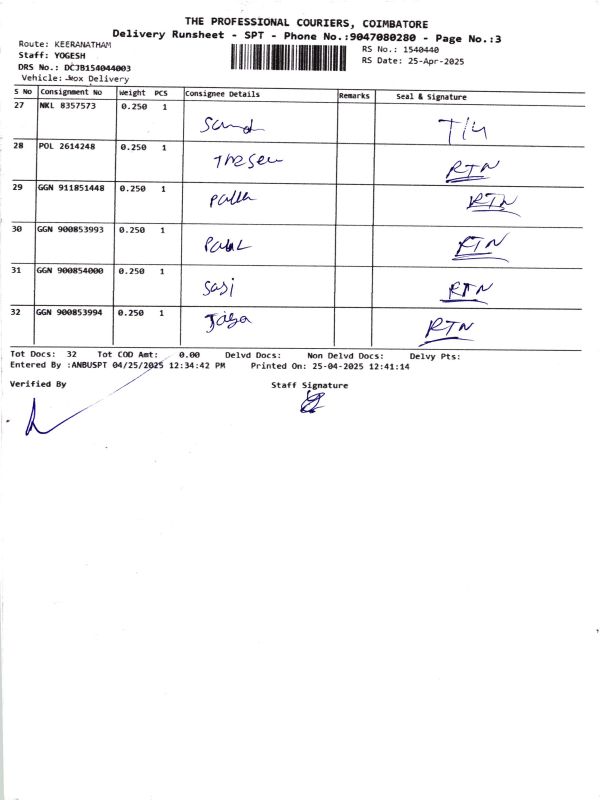 THE PROFESSIONAL COURIERS, COIMBATORE
Delivery Runsheet - SPT - Phone No.:9047080280 - Page No.:3
Route: KEERANATHAM
Staff: YOGESH
DRS No.: DCJB154044003
Vehicle: Nox Delivery
RS No.: 1540440
RS Date: 25-Apr-2025
S No Consignment No Weight PCS Consignee Details Remarks Seal & Signature
27 NKL 8357573 0.250 1
28 POL 2614248 0.250 1 RTN
29 GGN 911851448 0.250 1 RTN
30 GGN 900853993 0.250 1 RTN
31 GGN 900854000 0.250 1 Sasi RTN
32 GGN 900853994 0.250 1 RTN
Tot Docs: 32 Tot COD Amt: 0.00 Delvd Docs: Non Delvd Docs: Delvy Pts:
Entered By :ANBUSPT 04/25/2025 12:34:42 PM Printed On: 25-04-2025 12:41:14
Verified By Staff Signature